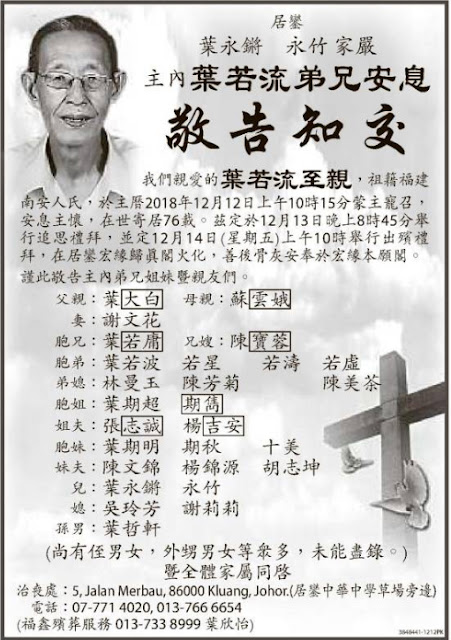 居鑾
葉永鏘　永竹家嚴
主內葉若流弟兄安息
敬告知交
我們親愛的葉若流至親，祖籍福建
南安人氏，於主曆2018年12月12日上午10時15分蒙主寵召，
安息主懷，在世寄居76載。茲定於12月13日晚上8時45分舉
行追思禮拜，並定12月14日(星期五)上午10時舉行出殯禮
拜，在居鑾宏緣歸真閣火化，善後骨灰安奉於宏緣本願閣。
謹此敬告主內弟兄姐妹暨親友們。
父親：葉大白　母親：蘇雲娥
妻：謝文花
胞兄：葉若庸　兄嫂：陳寶蓉
胞弟：葉若波　若星　若濤　若虛
弟媳：林曼玉　陳芳菊　陳美茶
胞姐：葉期超　期雋
姐夫：張志誠　楊吉安
胞妹：葉期明　期秋　十美
妹夫：陳文錦　楊錦源　胡志坤
兒：葉永鏘　永竹
媳：吳玲芳　謝莉莉
孫男：葉哲軒
(尚有侄男女，外甥男女等眾多，未能盡錄。)
暨全體家屬同啓
治喪處：5, Jalan Merbau, 86000 Kluang, Johor.(居鑾中華中學草場旁邊)
電話：07-771 4020, 013-766 6654
(福鑫殯葬服務 013-733 8999 葉欣怡)
3848441-1212PR